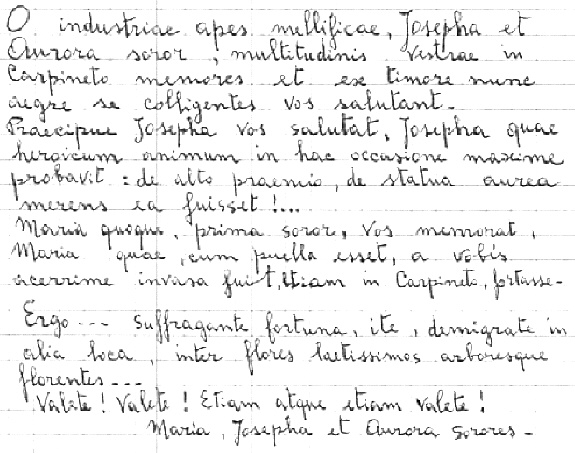 O industriae apes mellificae, Josepha et
Aurora soror, multitudinis vestrae in
Carpineto memores et ex timore nunc
aegre se colligentes vos salutant.
Praecipue Josepha vos salutat, Josepha quae
heroicum animum in hac occasione maxime
probavit : de alto praemio, de statua aurea
merens ea fuisset !...
Maria quoque, prima soror, vos memorat,
Maria quae, cum puella esset, a vobis
acerrime invasa fuit, etiam in Carpineto, fortasse-
Ergo --- suffragante fortuna, ite, demigrate in
alia loca, inter flores laetissimos arboresque
florentes---
Valete ! Valete ! Etiam atque etiam valete !
Maria, Josepha et Aurora sorores -